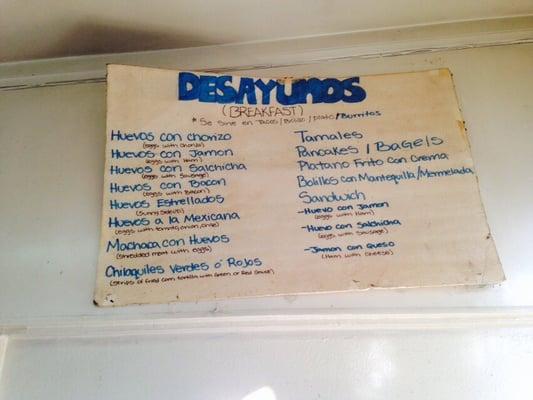 DESAYUNOS
(BREAKFAST)
* Se Sirve en Tacos/Bolillo/Plato/Burritos
Huevos con chorizo
(eggs with chorizo)
Huevos con Jamon
(eggs with Ham)
Huevos con Salchicha
(eggs with Sausage)
Huevos con Bacon
(eggs with Bacon)
Huevos Estrellados
(Sunny Side Up)
Huevos a la Mexicana
(eggs with tomato, onion,
Machaca con Huevos
(shredded meat with eggs)
Chilaquiles Verdes ó Rojos
(strips of fried corn tortilla with Green or Red Sauce)
Tamales
Pancakes / Bagels
Platano Frito con Crema
Bolillos con Mantequilla/Mermelada
Sandwich
-Huevo con Jamon
(eggs with Ham)
-Huevo con Salchicha
(eggs with Sausage)
-Jamon con Queso
(Ham with Cheese)